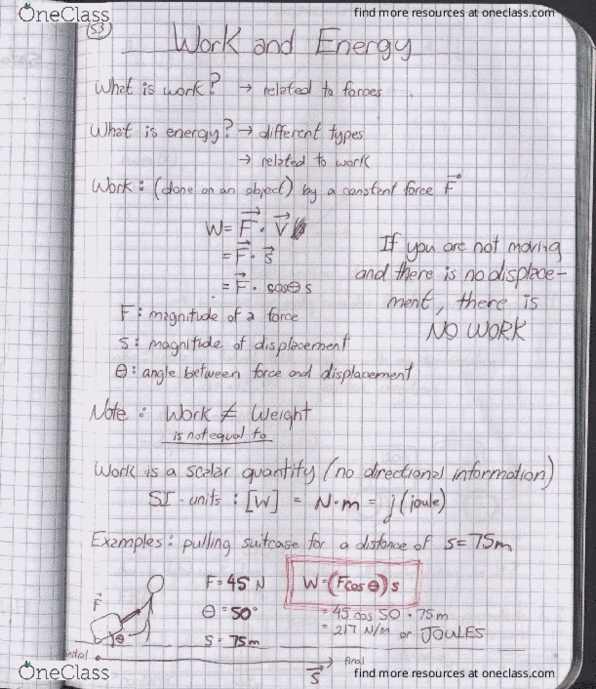 OneClass
find more resources at oneclass.com
53
Work and Energy
What is work? → related to forces
What is energy? → different types
→ related to work
Work: (done on an object) by a constant force F
W = F · V
= F · s
= F · cosθ s
If you are not moving
and there is no displace-
ment, there is
NO WORK
F: magnitude of a force
S: magnitude of displacement
θ: angle between force and displacement
Note: Work ≠ Weight
is not equal to
Work is a scalar quantity (no directional information)
SI-units: [W] = N·m = j (joule)
Examples: pulling suitcase for a distance of s=75m
F = 45 N
W=(Fcos θ)s
θ = 50°
= 45 cos 50 · 75m
S = 75m
= 217 N/m or JOULES
F
θ
final
S
OneClass
find more resources at oneclass.com